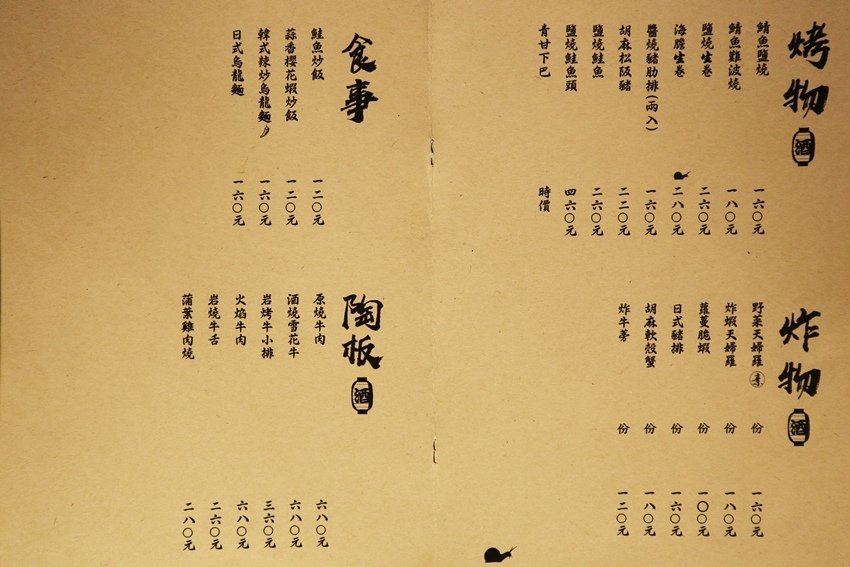 烤物 酒
鯖魚鹽燒 一六〇元
鯖魚難波燒 一八〇元
鹽燒生卷 二六〇元
海膽生卷 二八〇元
醬燒豬肋排(兩入) 一六〇元
胡麻松阪豬 二二〇元
鹽燒鮭魚 二六〇元
鹽燒鮭魚頭 四六〇元
青甘下巴 時價
炸物 酒
野菜天婦羅 素 份 一六〇元
炸蝦天婦羅 份 一八〇元
蘿蔓脆蝦 份 一〇〇元
日式豬排 份 一六〇元
胡麻軟殼蟹 份 一八〇元
炸牛蒡 份 一二〇元
食事
鮭魚炒飯 一二〇元
蒜香櫻花蝦炒飯 一二〇元
韓式辣炒烏龍麵 一六〇元
日式烏龍麵 一六〇元
陶板 酒
原燒牛肉 六八〇元
酒燒雪花牛 六八〇元
岩烤牛小排 三六〇元
火焰牛肉 六八〇元
岩燒牛舌 二六〇元
蒲葉雞肉燒 二八〇元